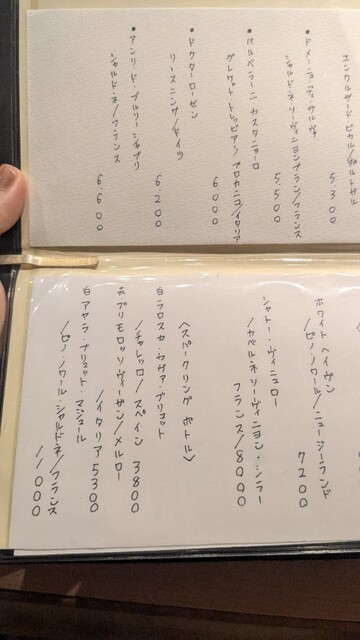 エンクルザード・ピカル/ポルトガル
5.300
• ドメーヌ・デュ・サルヴァ
シャルドネ・ソーヴィニヨンブラン/フランス
5.500
• バルベラーニ カスタニョーロ
グレケット・トレッビアーノ プロカニコ/イタリア
6.000
• ドクターローゼン
リースニング/ドイツ
6.200
• アンリ・ド・ブルソー シャブリ
シャルドネ/フランス
6.600
ホワイトヘイヴン
/ピノ・ノワール/ニュージーランド
7200
シャトー・ヴィニュロー
/カベルネ・ソーヴィニヨン・シラー
フランス/8000
〈スパークリング ボトル〉
白 ラロスカ・カヴァ・ブリュット
/チャレッロ/スペイン 3800
赤 プリモロッソ ヴィーガン/メルロー
/イタリア 5300
白 アヤラ・ブリュット・マジュール
/ピノ・ノワール・シャルドネ/フランス
11000